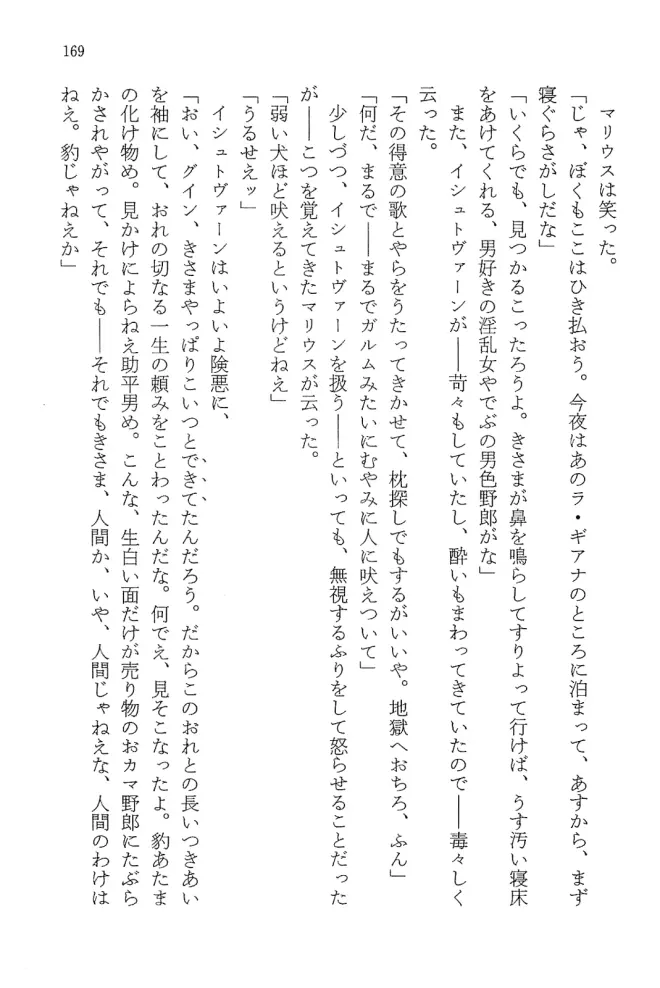 169
マリウスは笑った。
「じゃ、ぼくもここはひき払おう。今夜はあのラ・ギアナのところに泊まって、あすから、まず
寝ぐらさがしだな」
「いくらでも、見つかるこったろうよ。きさまが鼻を鳴らしてすりよって行けば、うす汚い寝床
をあけてくれる、男好きの淫乱女やでぶの男色野郎がな」
また、イシュトヴァーンが――苛々もしていたし、酔いもまわってきていたので――毒々しく
云った。
「その得意の歌とやらをうたってきかせて、枕探しでもするがいいや。地獄へおちろ、ふん」
「何だ、まるで――まるでガルムみたいにむやみに人に吠えついて」
少しづつ、イシュトヴァーンを扱う――といっても、無視するふりをして怒らせることだった
が――こつを覚えてきたマリウスが云った。
「弱い犬ほど吠えるというけどねえ」
「うるせえッ」
イシュトヴァーンはいよいよ険悪に、
「おい、グイン、きさまやっぱりこいつとできてたんだろう。だからこのおれとの長いつきあい
を袖にして、おれの切なる一生の頼みをことわったんだな。何でえ、見そこなったよ。豹あたま
の化け物め。見かけによらねえ助平男め。こんな、生白い面だけが売り物のおカマ野郎にたぶら
かされやがって、それでも――それでもきさま、人間か、いや、人間じゃねえな、人間のわけは
ねえ。豹じゃねえか」